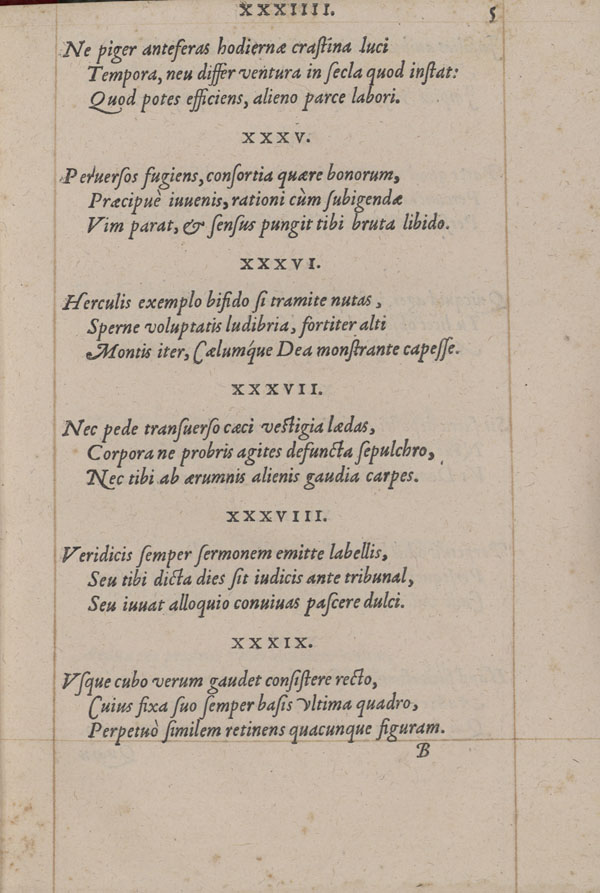 XXXIIII. 5
Ne piger anteferas hodiernæ craſtina luci
Tempora, neu differ ventura in ſecla quod inſtat:
Quod potes efficiens, alieno parce labori.
XXXV.
Peruerſos fugiens, conſortia quære bonorum,
Præcipuè iuuenis, rationi cùm ſubigendæ
Vim parat, & ſenſus pungit tibi bruta libido.
XXXVI.
Herculis exemplo bifido ſi tramite nutas,
Sperne voluptatis ludibria, fortiter alti
Montis iter, Cælumq́ue Dea monſtrante capeſſe.
XXXVII.
Nec pede tranſuerſo cæci veſtigia lædas,
Corpora ne probris agites defuncta ſepulchro,
Nec tibi ab ærumnis alienis gaudia carpes.
XXXVIII.
Veridicis ſemper ſermonem emitte labellis,
Seu tibi dicta dies ſit iudicis ante tribunal,
Seu iuuat alloquio conuiuas paſcere dulci.
XXXIX.
Vſque cubo verum gaudet conſiſtere recto,
Cuius fixa ſuo ſemper baſis vltima quadro,
Perpetuò ſimilem retinens quacunque figuram.
B